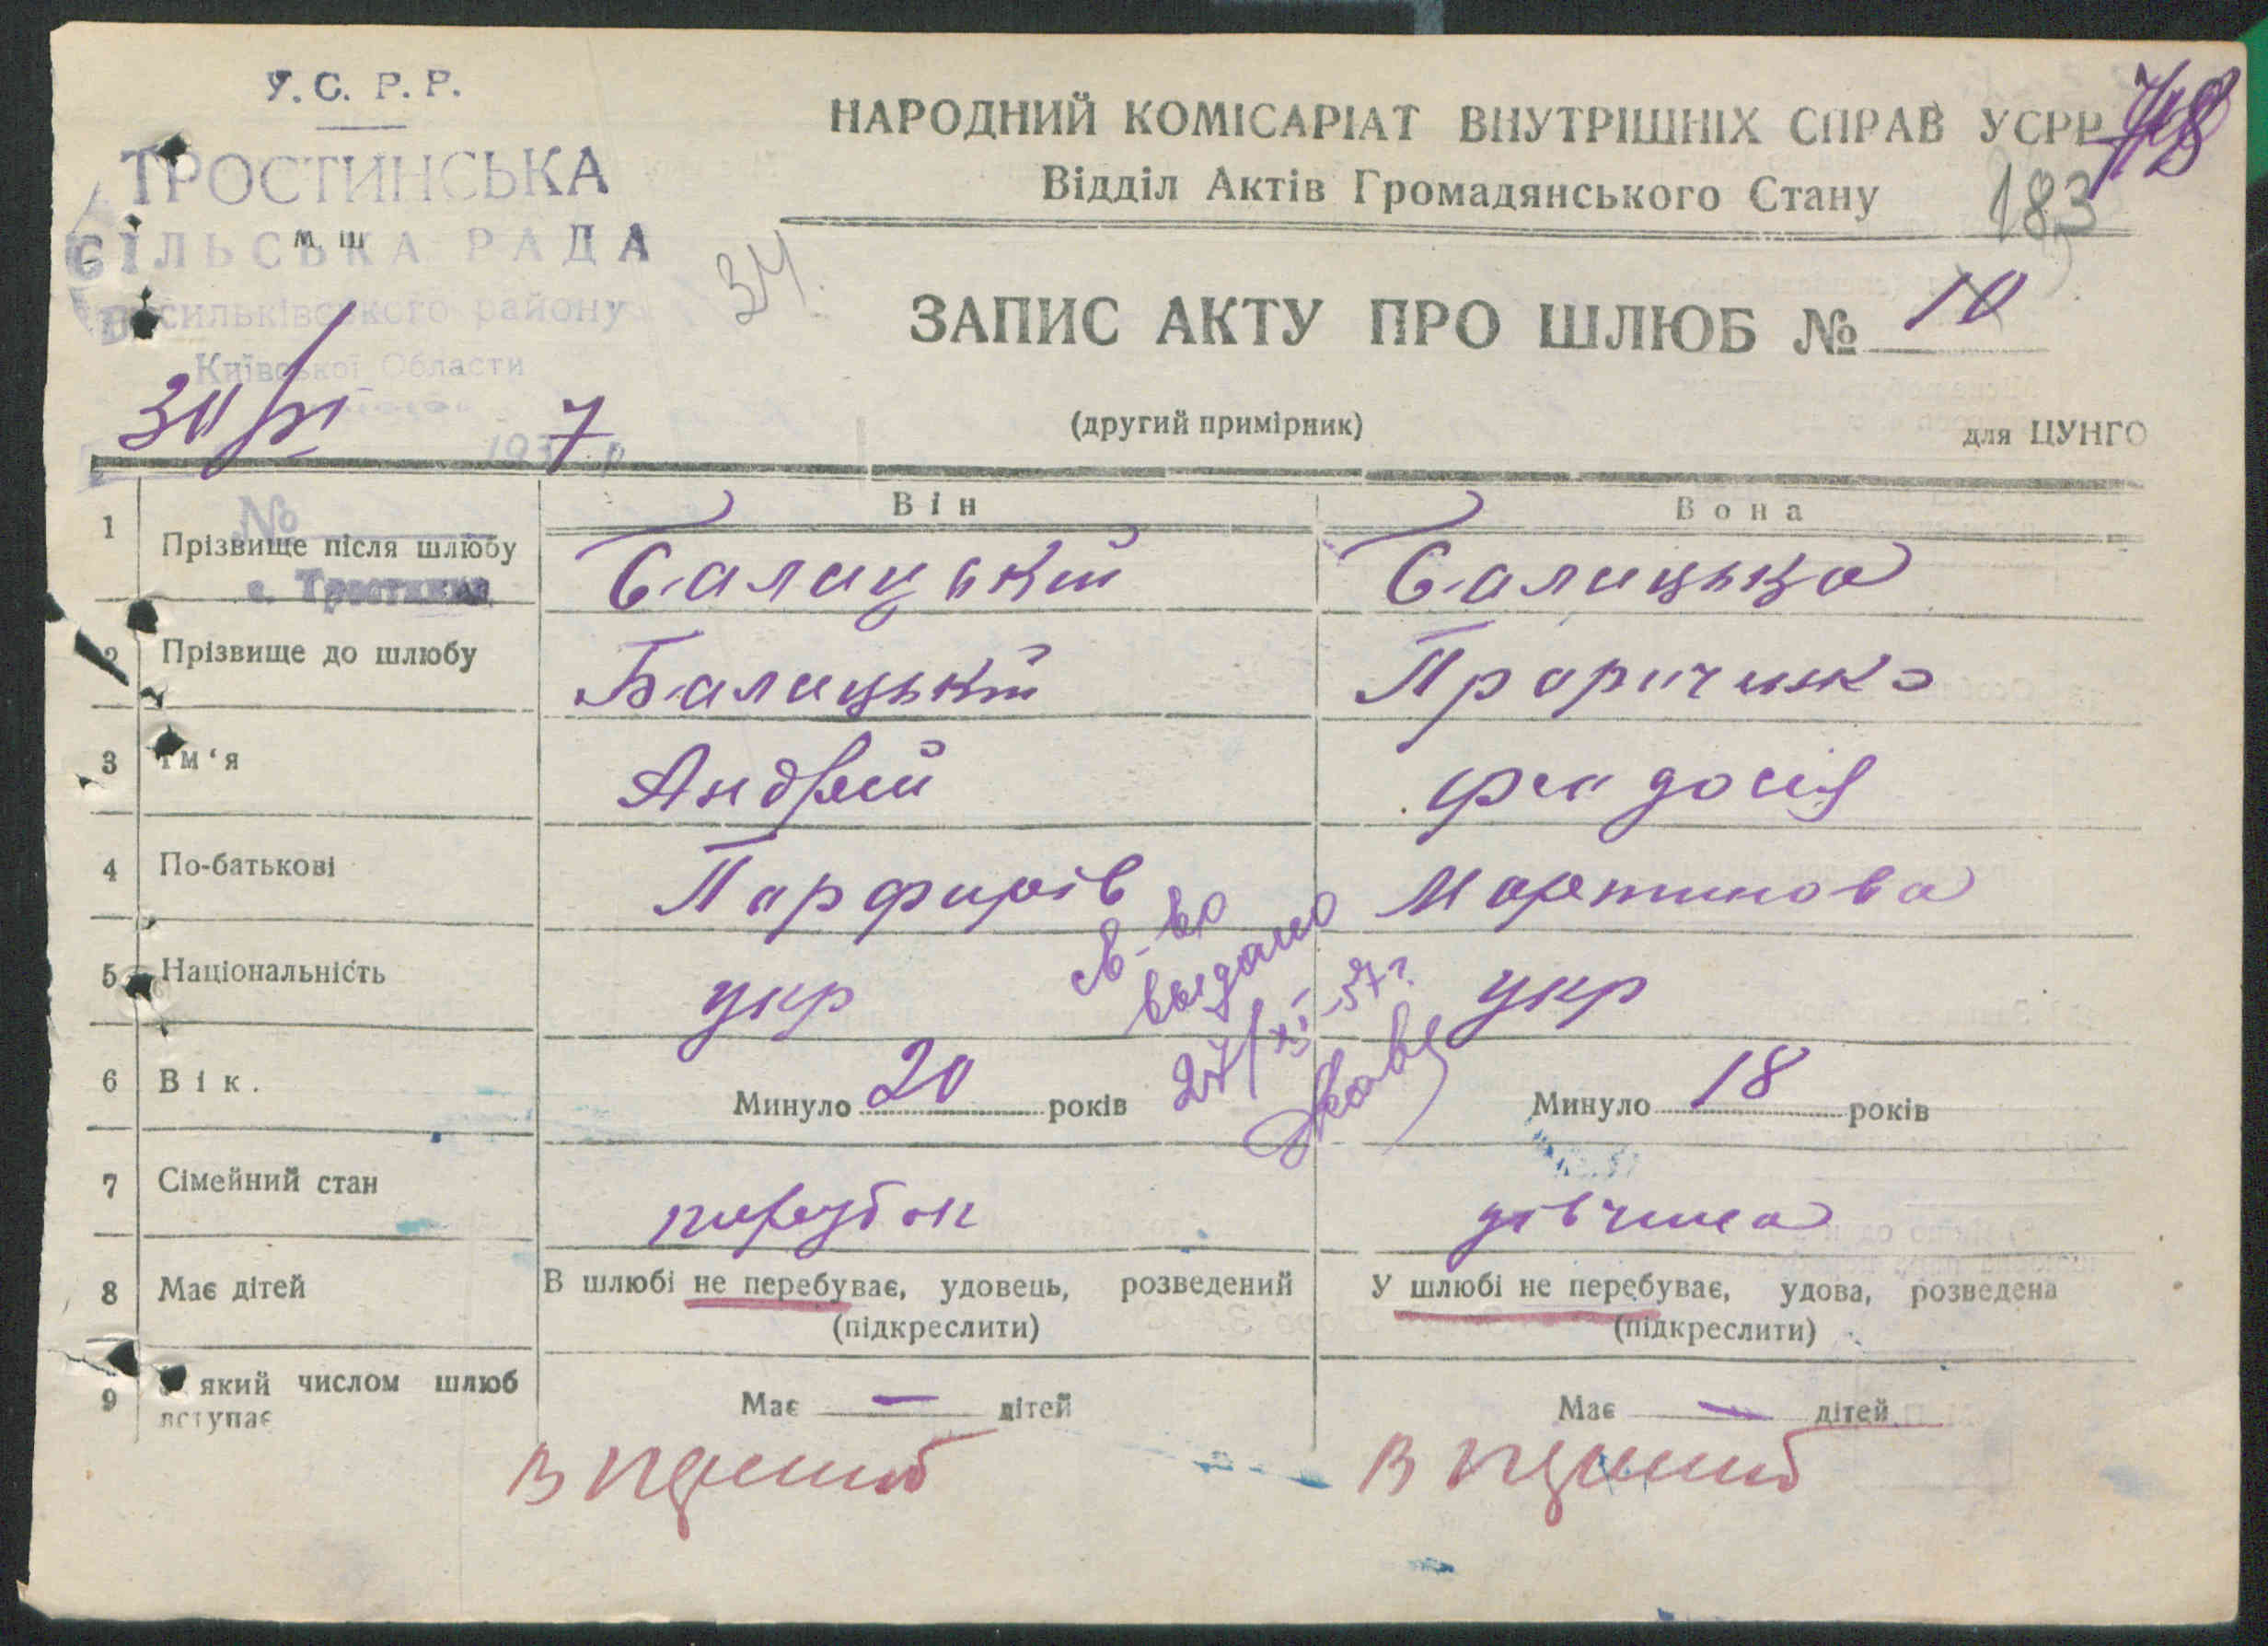 У.С.Р.Р.
ТРОСТИНСЬКА
СІЛЬСЬКА РАДА
Васильківського району
Київської Области
30/XI 1937 р
№
с. Тростинка
34.
НАРОДНИЙ КОМІСАРІАТ ВНУТРІШНІХ СПРАВ УСРР
Відділ Актів Громадянського Стану
183
ЗАПИС АКТУ ПРО ШЛЮБ № 10
(другий примірник)
для ЦУНГО
Він Вона
1 Прізвище після шлюбу Балицький Балицька
2 Прізвище до шлюбу Балицький
3 Ім‘я Андрей Феодосія
4 По-батькові Парфирів Мартинова
5 Національність укр укр
св-во
выдано
27/XI-37 г.
6 Вік. Минуло 20 років Минуло 18 років
7 Сімейний стан парубок дівчина
8 Має дітей В шлюбі не перебуває, удовець, розведений У шлюбі не перебуває, удова, розведена
(підкреслити) (підкреслити)
9 який числом шлюб вступає Має — дітей Має — дітей
В перший В перший